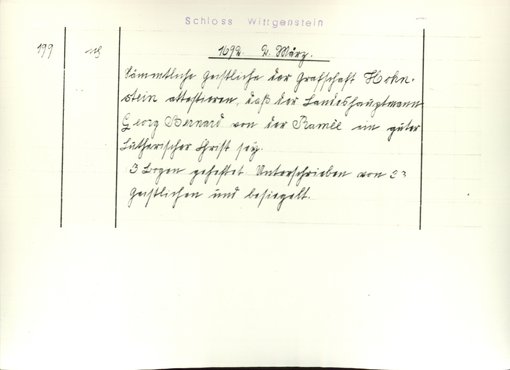 Schloss Wittgenstein
199
1692. 2. März.
Sämmtliche Geistliche der Grafschaft Hohn-
stein attestieren, daß der Landeshauptmann
Georg Bernard von der Ramée ein guter
Lutherischer Christ sey.
3 Bogen geheftet. Unterschrieben von
Geistlichen und besiegelt.